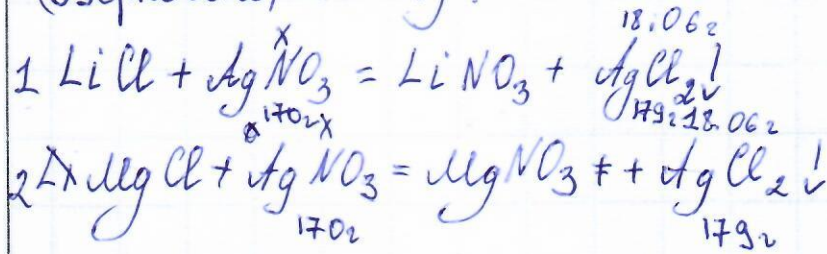 18.06г
x
1 LiCl + AgNO3 = LiNO3 + AgCl2↓
170г x 179г 18.06г
2 MgCl + AgNO3 = MgNO3 + AgCl2↓
170г 179г